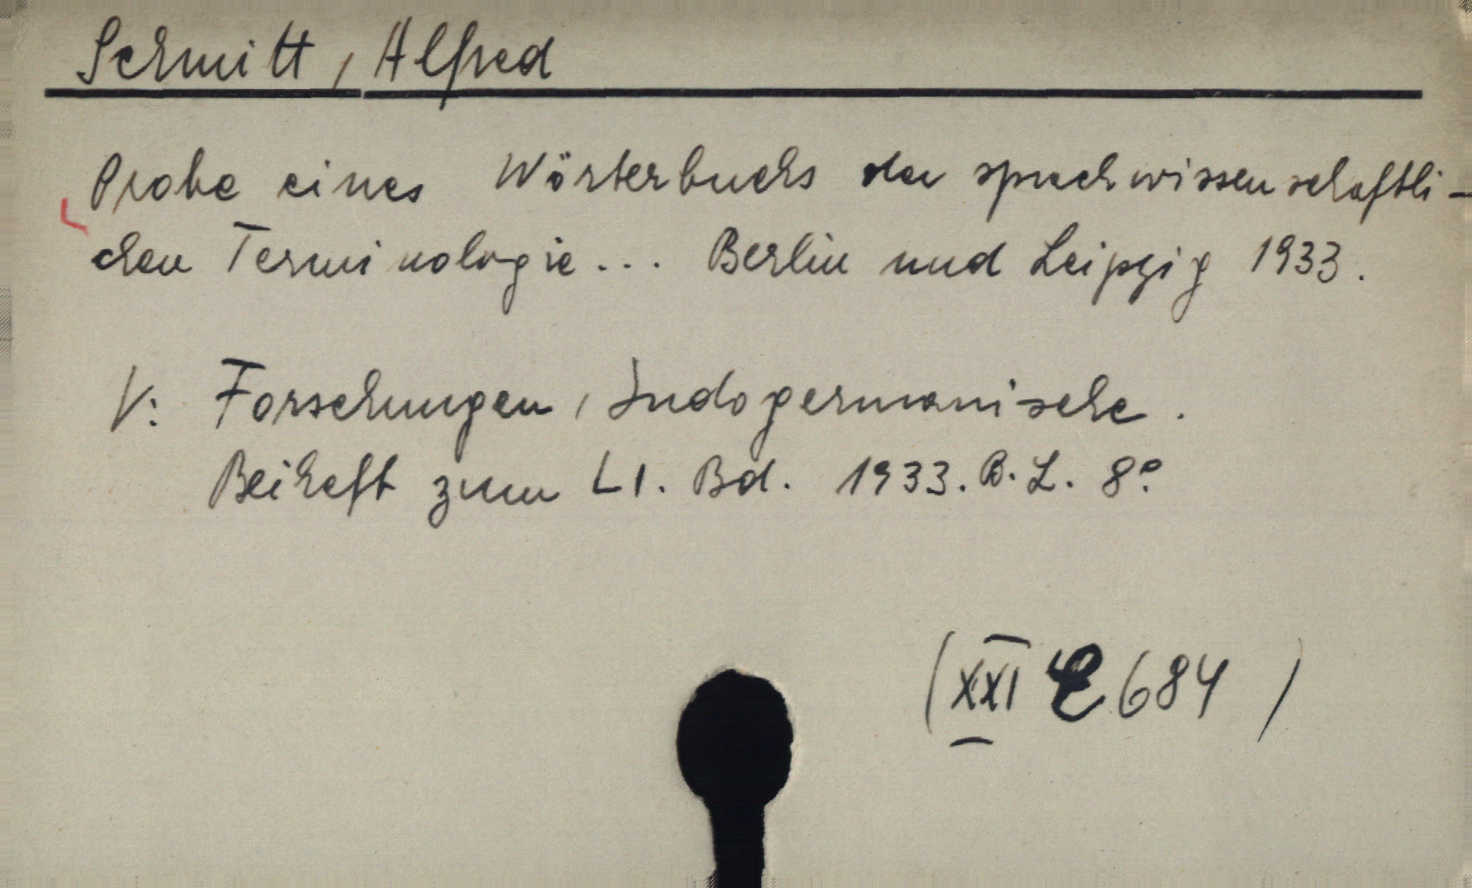 Schmitt, Alfred
Probe eines Wörterbuchs der sprachwissenschaftli-
chen Terminologie... Berlin und Leipzig 1933.
V: Forschungen, Indogermanische.
Beiheft zum LI. Bd. 1933. B. L. 8°
(XXI E 684)